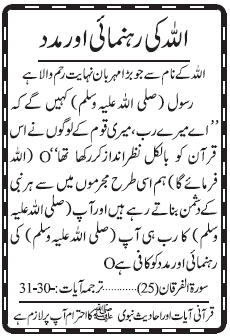 اللہ کی رہنمائی اور مدد
اللہ کے نام سے جو بڑا مہربان نہایت رحم والا ہے
رسول (صلی اللہ علیہ وسلم) کہیں گے کہ
’’اے میرے رب، میری قوم کے لوگوں نے اس
قرآن کو بالکل نظر انداز کر رکھا تھا‘‘O (اللہ
فرمائے گا) ہم اسی طرح مجرموں میں سے ہر نبی
کے دشمن بناتے رہے ہیں اور آپ (صلی اللہ علیہ
وسلم) کا رب ہی آپ (صلی اللہ علیہ وسلم) کی
رہنمائی اور مدد کو کافی ہےO
سورۃ الفرقان (25)............ ترجمہ آیات:-30-31
قرآنی آیات اور احادیث نبوی ﷺ کا احترام آپ پر لازم ہے